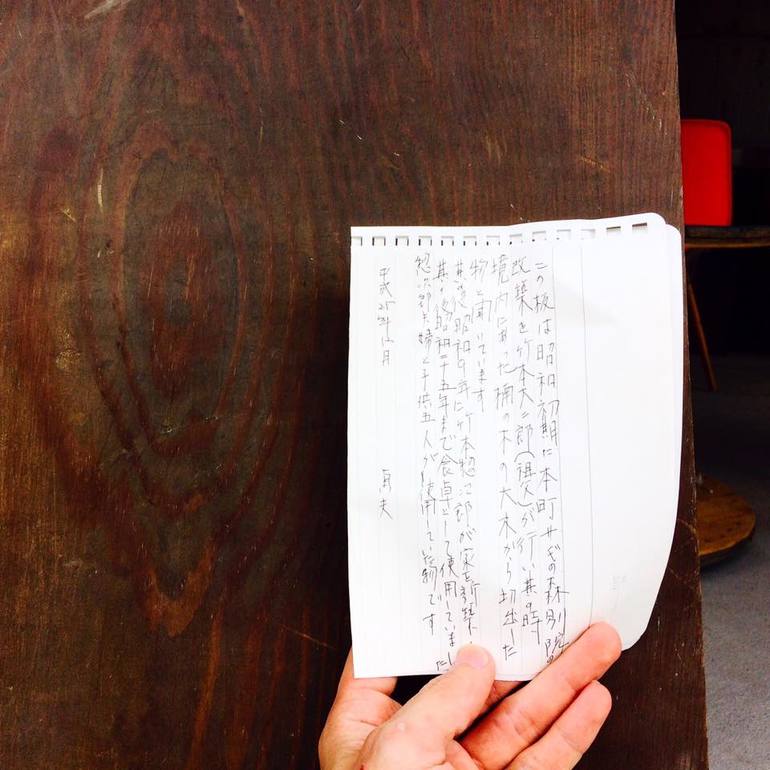 この板は昭和初期に本町サギの森別院の
改築を竹本大二郎(祖父)が行い其の時
境内にあった楠の木の大木から切出した
物と聞いています
其の後昭和9年に竹本惣次郎が家を新築し
其の後昭和二十五年まで食卓として使用していました
惣次郎夫婦と子供五人が使用していた物です
平成25年12月 貞夫